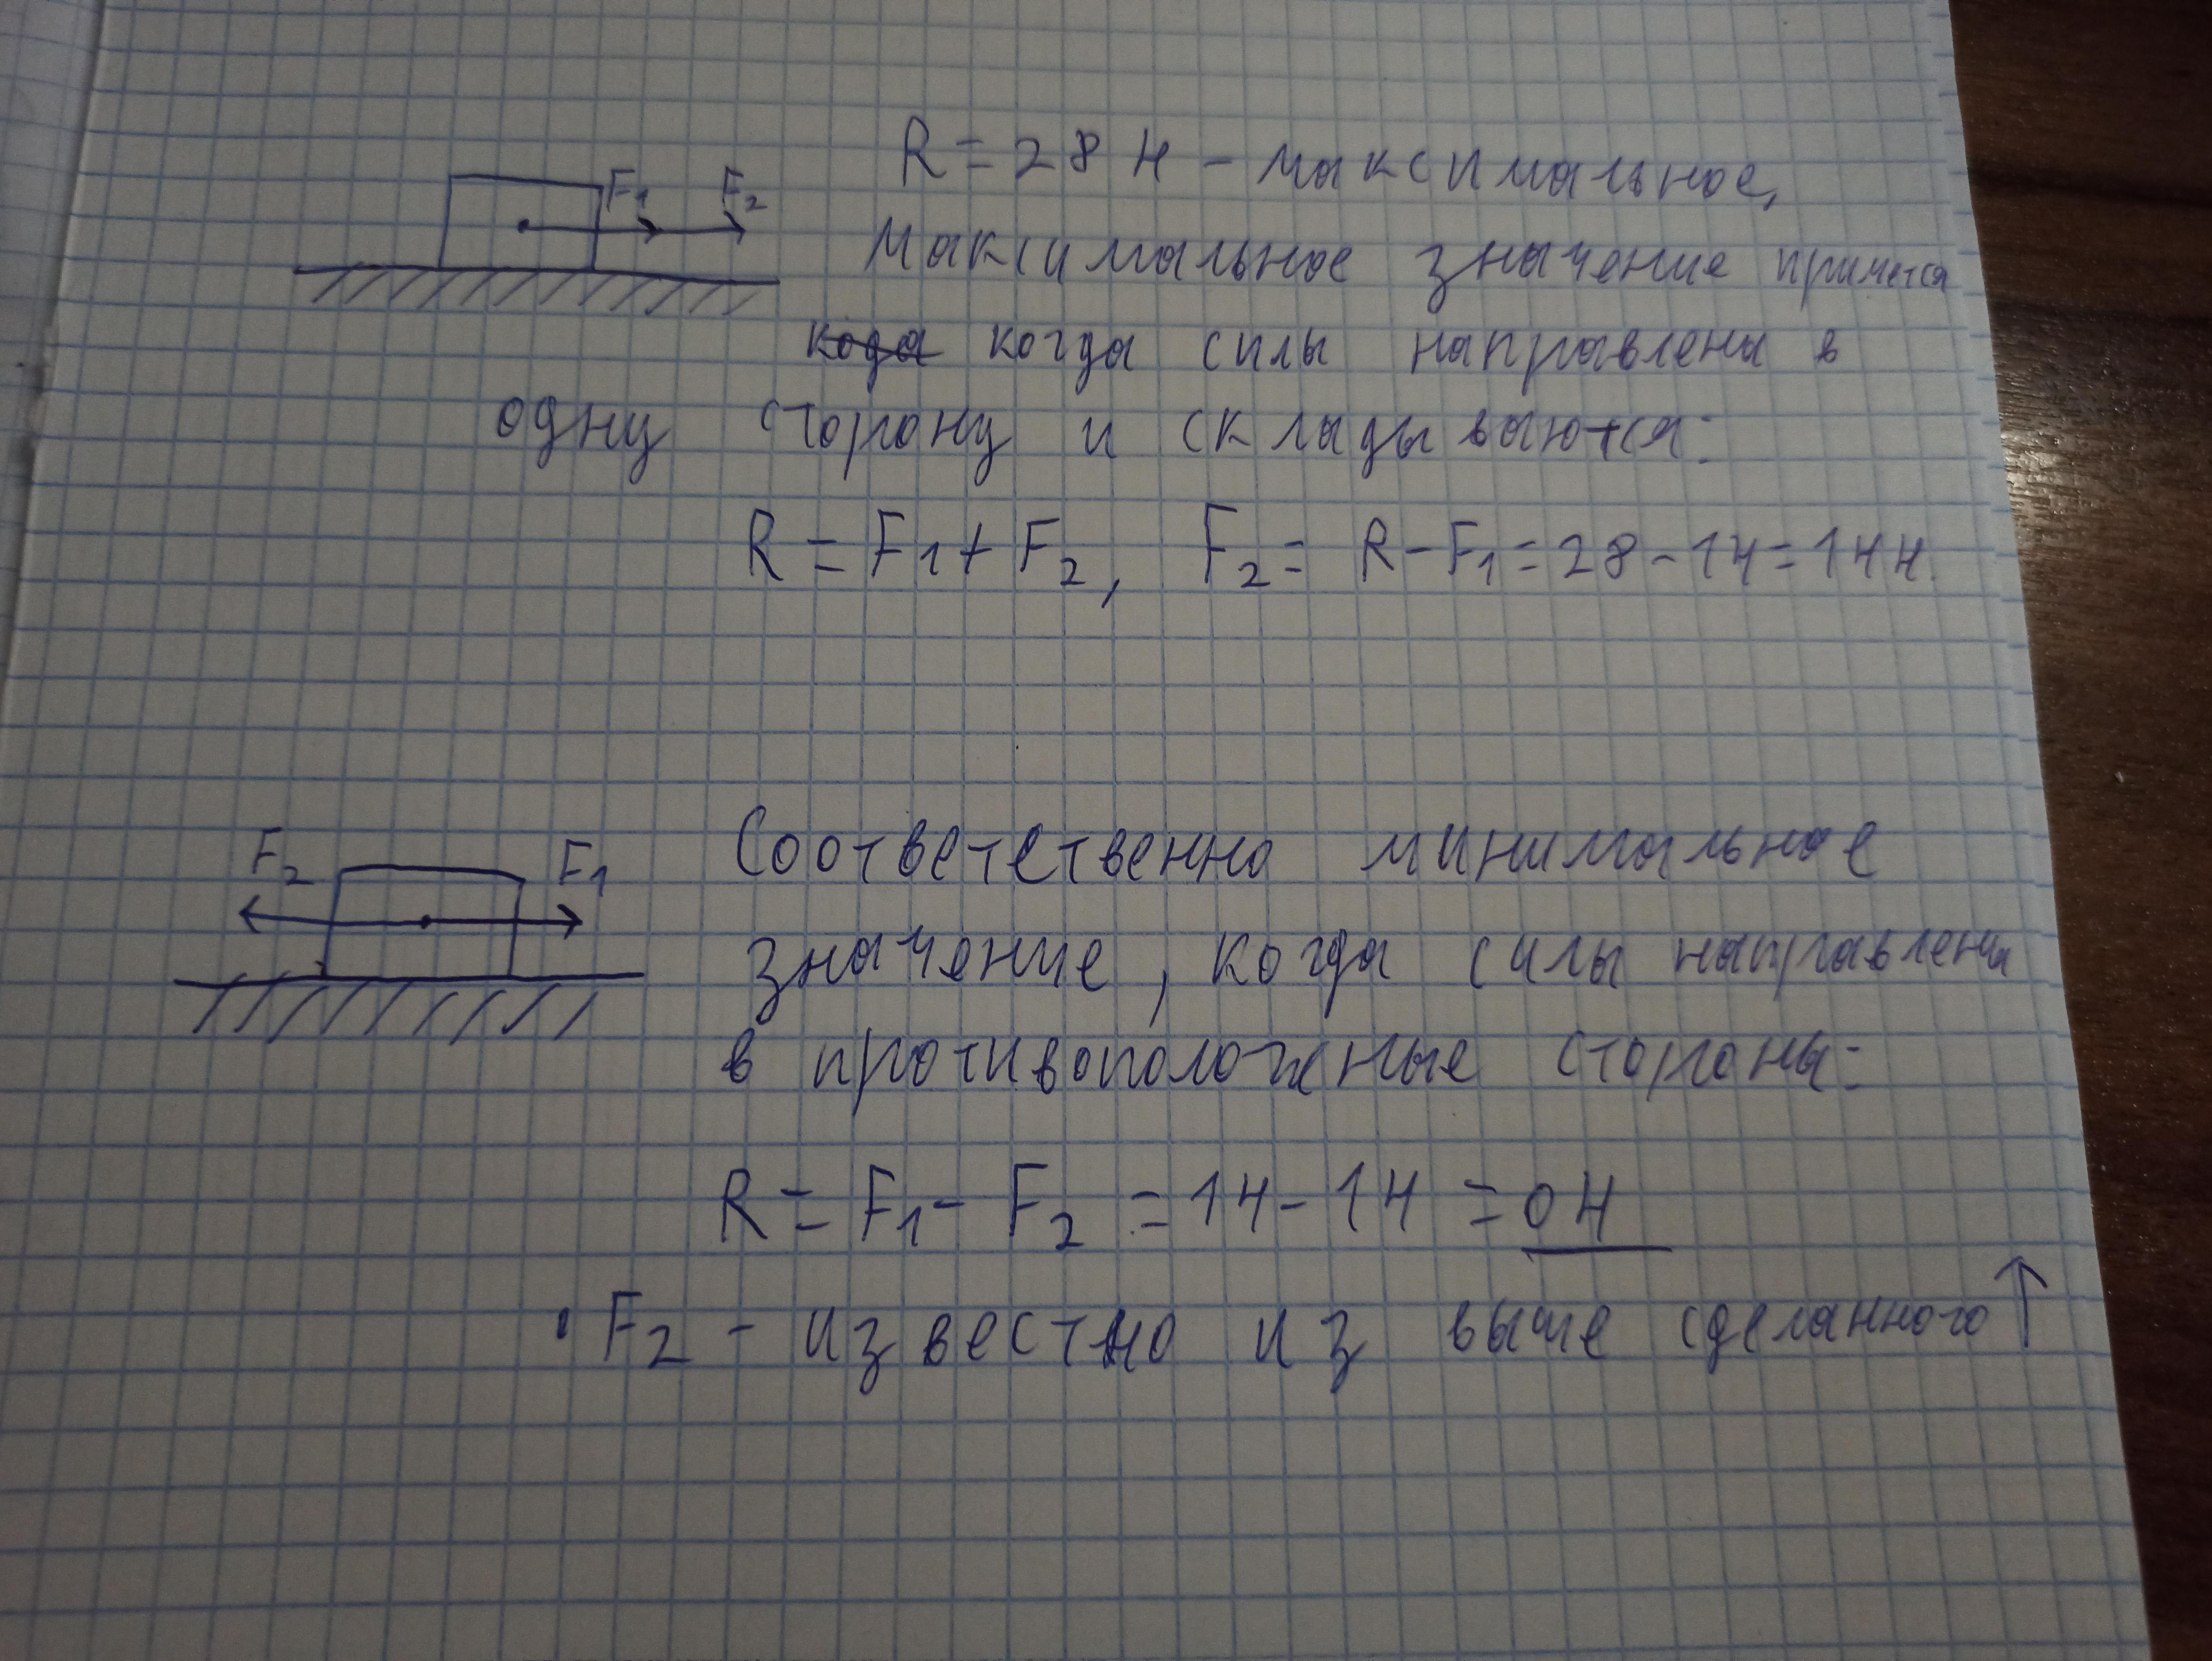 F₁ F₂
R = 28 Н – максимальное,
Максимальное значение примется
кода когда силы направлены в
одну сторону и складываются:
R = F₁ + F₂, F₂ = R – F₁ = 28 – 14 = 14 Н.
F₂ F₁
Соответственно минимальное
значение, когда силы направлены
в противоположные стороны:
R = F₁ – F₂ = 14 – 14 = 0 Н
• F₂ – известно из выше сделанного ↑